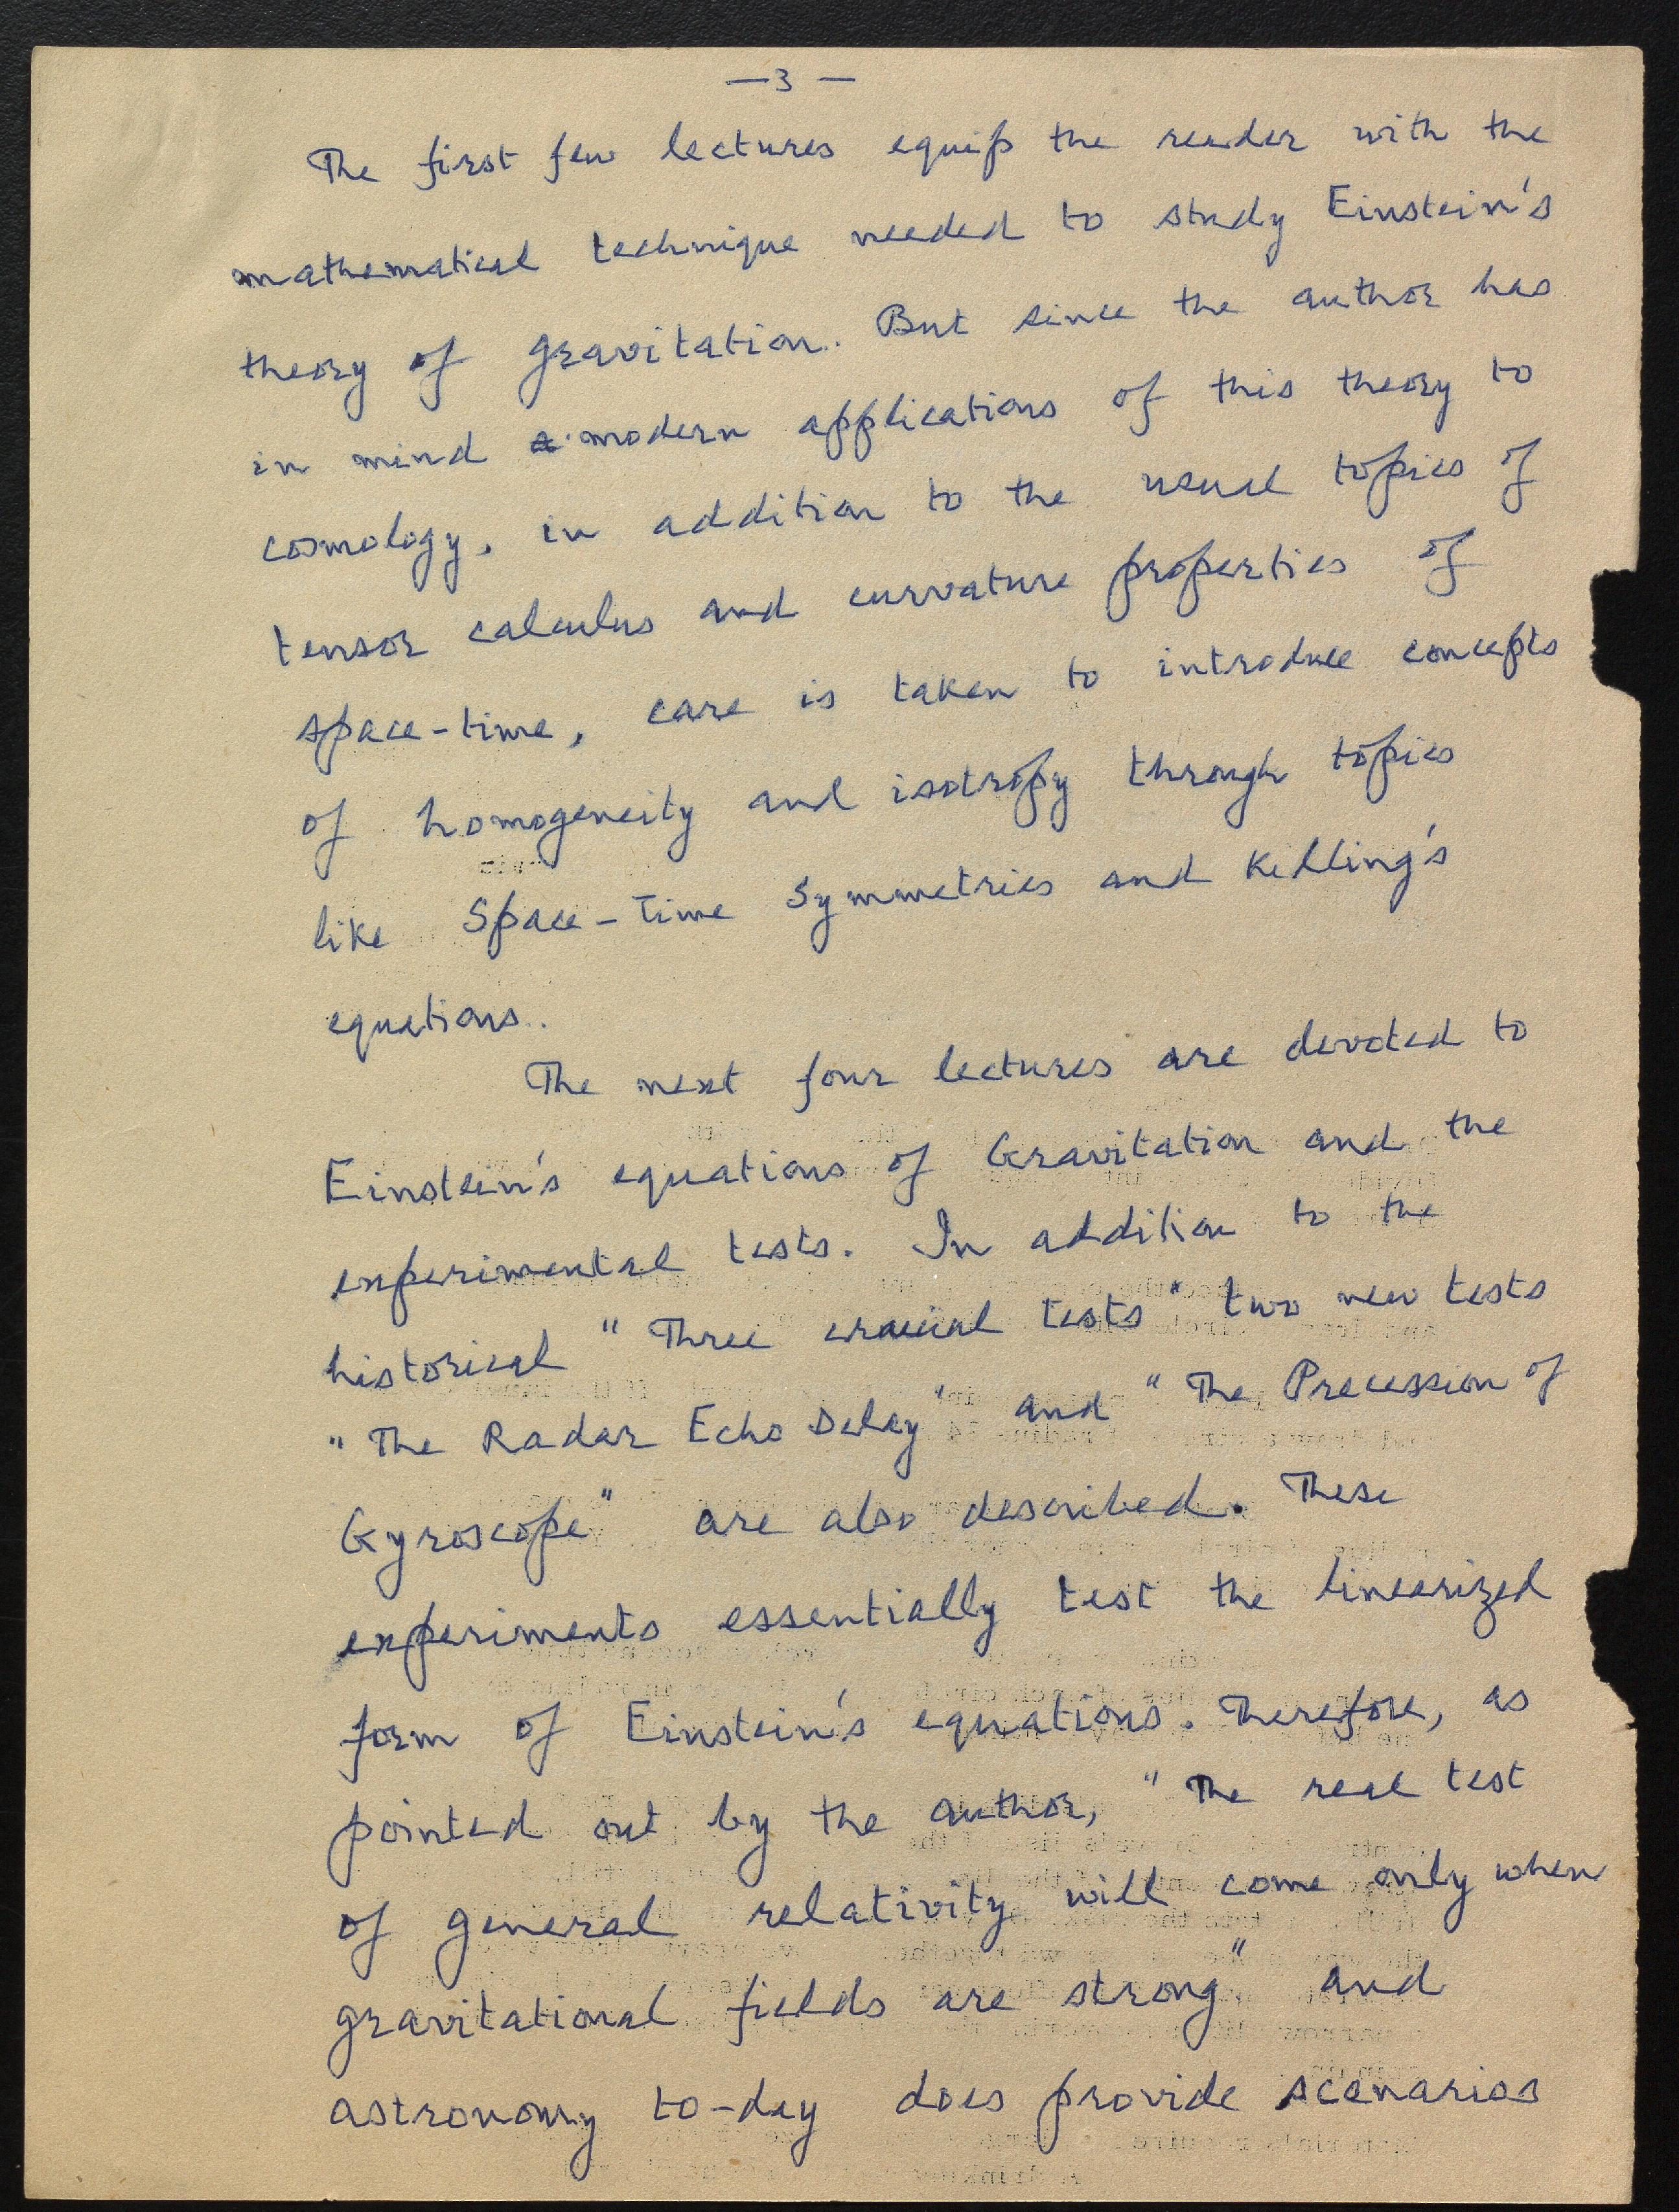 —3—
The first few lectures equip the reader with the
mathematical technique needed to study Einstein's
theory of gravitation. But since the author has
in mind modern applications of this theory to
cosmology, in addition to the usual topics of
tensor calculus and curvature properties of
space-time, care is taken to introduce concepts
of homogeneity and isotropy through topics
like Space-Time Symmetries and Killing's
equations.
The next four lectures are devoted to
Einstein's equations of Gravitation and the
experimental tests. In addition to the
historical "Three crucial tests" two new tests
"The Radar Echo Delay" and "The Precession of
Gyroscope" are also described. These
experiments essentially test the linearized
form of Einstein's equations. Therefore, as
pointed out by the author, "The real test
of general relativity will come only when
gravitational fields are strong" and
astronomy to-day does provide scenarios